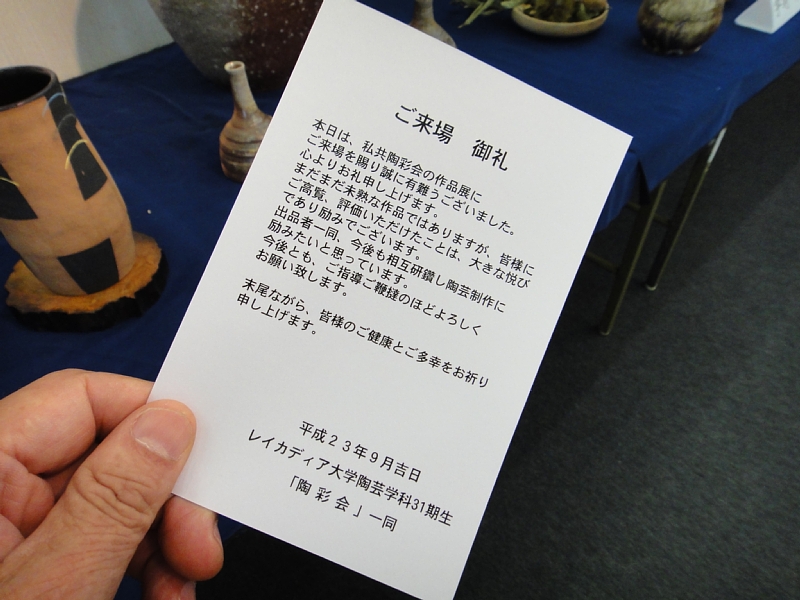 ご来場　御礼
本日は、私共陶彩会の作品展に
ご来場を賜り誠に有難うございました。
心よりお礼申し上げます。
まだまだ未熟な作品ではありますが、皆様に
ご高覧、評価いただけたことは、大きな悦び
であり励みでございます。
出品者一同、今後も相互研鑽し陶芸制作に
励みたいと思っています。
今後とも、ご指導ご鞭撻のほどよろしく
お願い致します。
末尾ながら、皆様のご健康とご多幸をお祈り
申し上げます。
平成２３年９月吉日
レイカディア大学陶芸学科31期生
「陶 彩 会 」一同